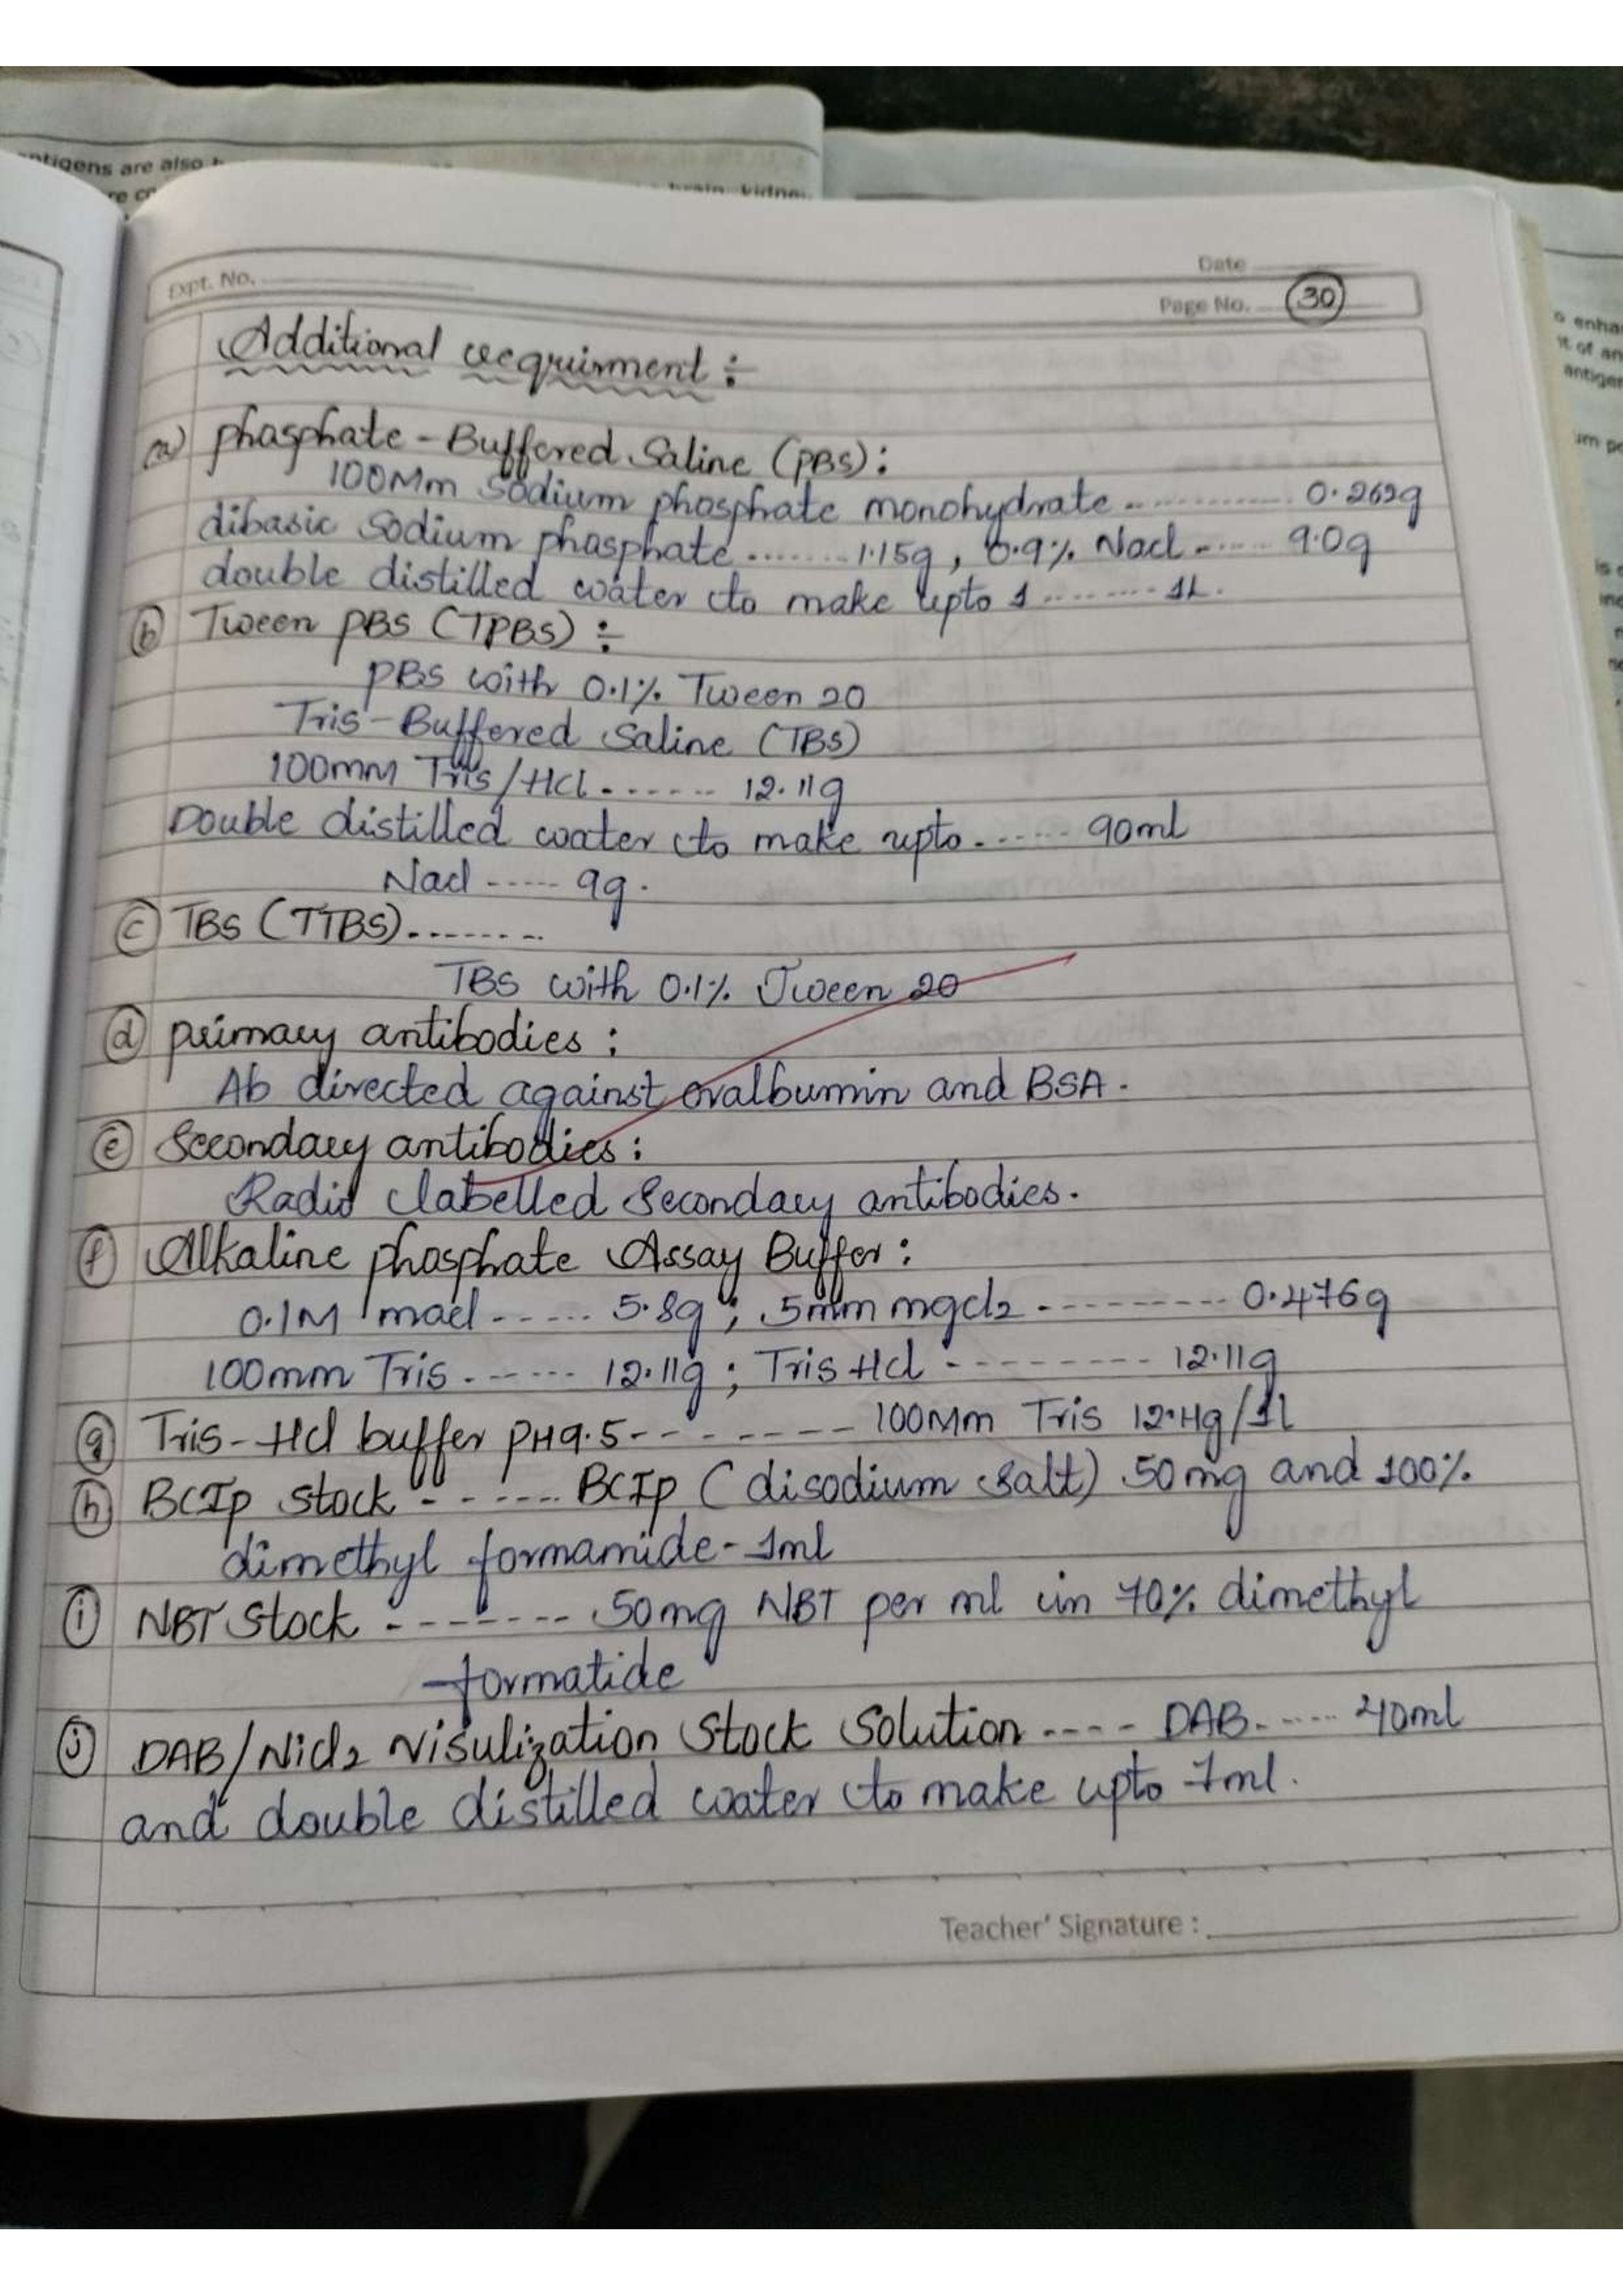 antigens are also
brain, kidne
Date
Expt. No.
Page No. 30
Additional requirment :
a) phasphate - Buffered Saline (PBS) :
100Mm Sodium phasphate monohydrate ........... 0.262g
dibasic Sodium phasphate ....... 1.15g, 0.9% Nacl ...... 9.0g
double distilled water to make upto 1 ........ 1L.
b Tween PBS (TPBS) :
PBS with 0.1% Tween 20
Tris - Buffered Saline (TBS)
100mM Tris/Hcl ....... 12.11g
Double distilled water to make upto ...... 90ml
Nacl ----- 9g.
c TBS (TTBS) ........
TBS with 0.1% Tween 20
d primary antibodies :
Ab directed against ovalbumin and BSA.
e Secondary antibodies :
Radio labelled Secondary antibodies.
f Alkaline phasphate Assay Buffer :
0.1M macl ------ 5.8g ; 5mm mgcl2 ---------- 0.476g
100mm Tris ------- 12.11g ; Tris Hcl --------- 12.11g
g Tris - Hcl buffer PH9.5 -------- 100Mm Tris 12.Hg/1l
h BCIp stock ------- BCIp (disodium salt) 50mg and 100%
dimethyl formamide - 1ml
i NBT Stock -------- 50mg NBT per ml in 70% dimethyl
formatide
j DAB/Nicl2 Visulization Stock Solution ---- DAB ----- 40ml
and double distilled water to make upto 1ml.
Teacher' Signature :
enha
it of an
antigen